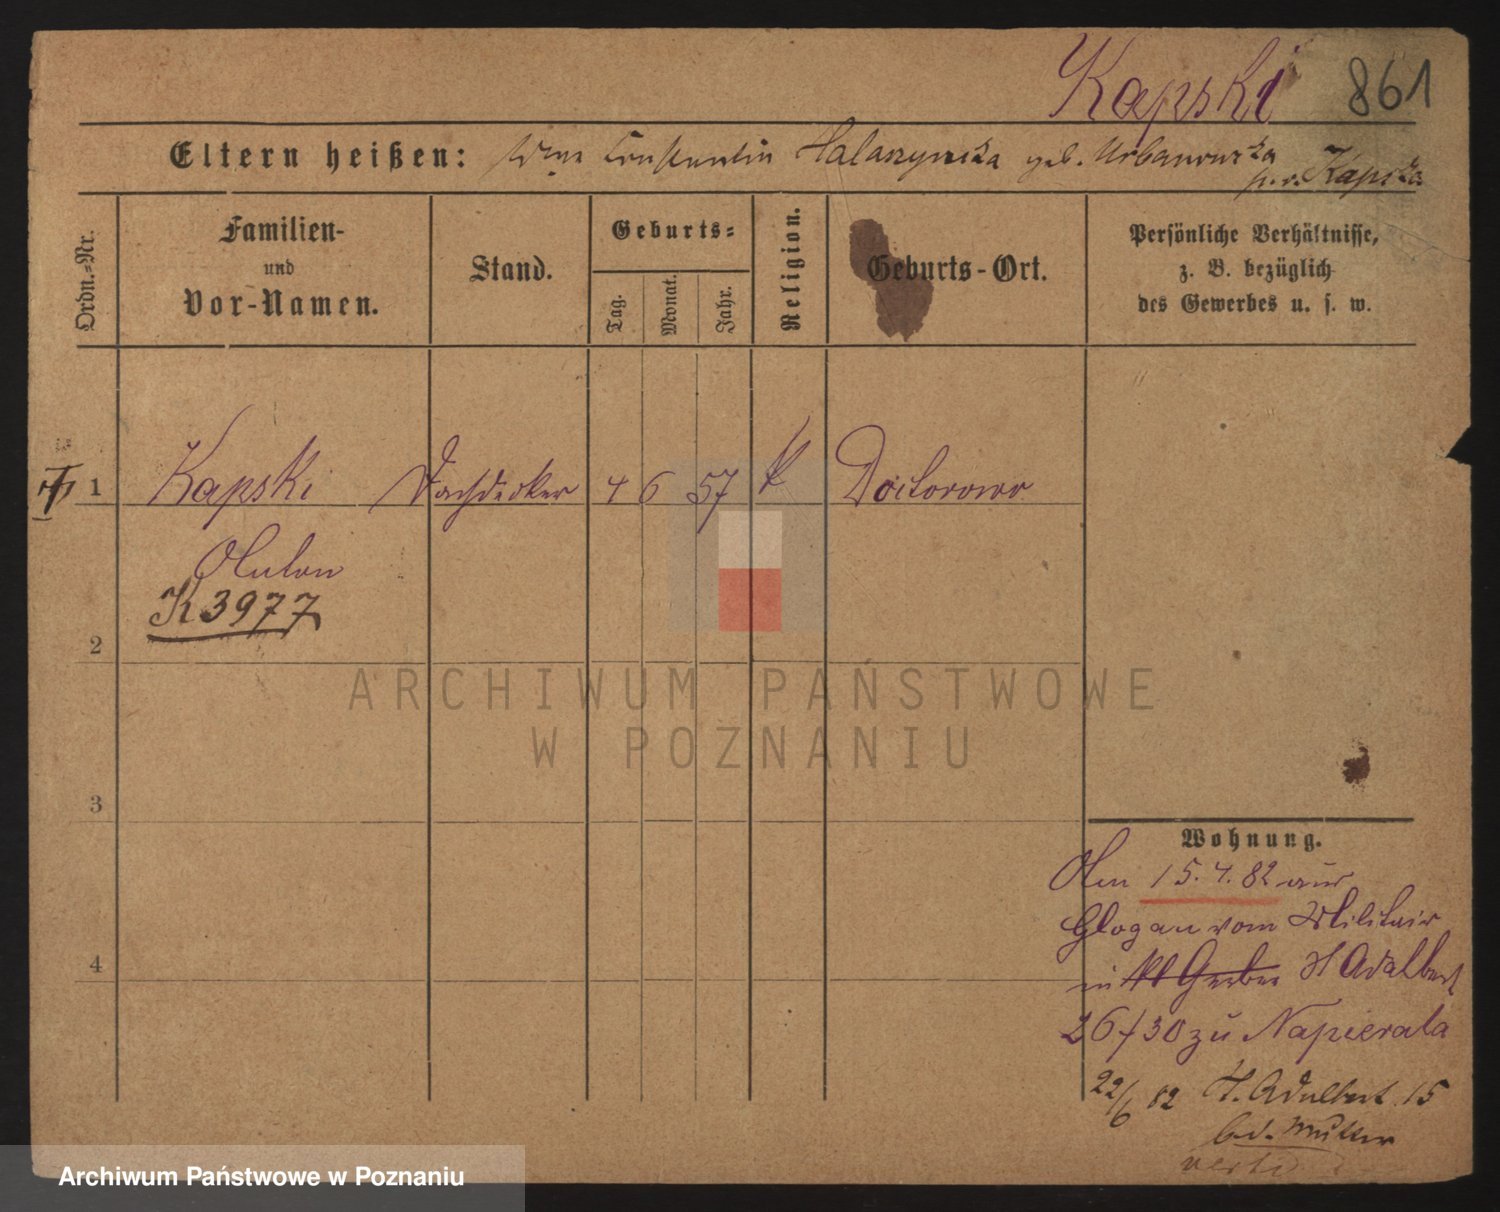 Kapski 861
Eltern heißen: Constantin Halaszynska geb. Urbanowska
p.v. Kapska
Ordn.-Nr.
Familien-
und
Vor-Namen.
Stand.
Geburts-
Tag.
Monat.
Jahr.
Religion.
Geburts-Ort.
Persönliche Verhältnisse,
z. B. bezüglich
des Gewerbes u. s. w.
1 Kapski Dachdecker 4 6 57 k Doctorowo
Anton
K3977
2
3
4
ARCHIWUM PAŃSTWOWE
W POZNANIU
Wohnung.
Am 15.4.82 aus
Glogau vom Militair
in Kl Gerber St Adalbert
26/30 zu Napierala
22/6 82 St. Adalbert 15
b.d. Mutter
verte
Archiwum Państwowe w Poznaniu